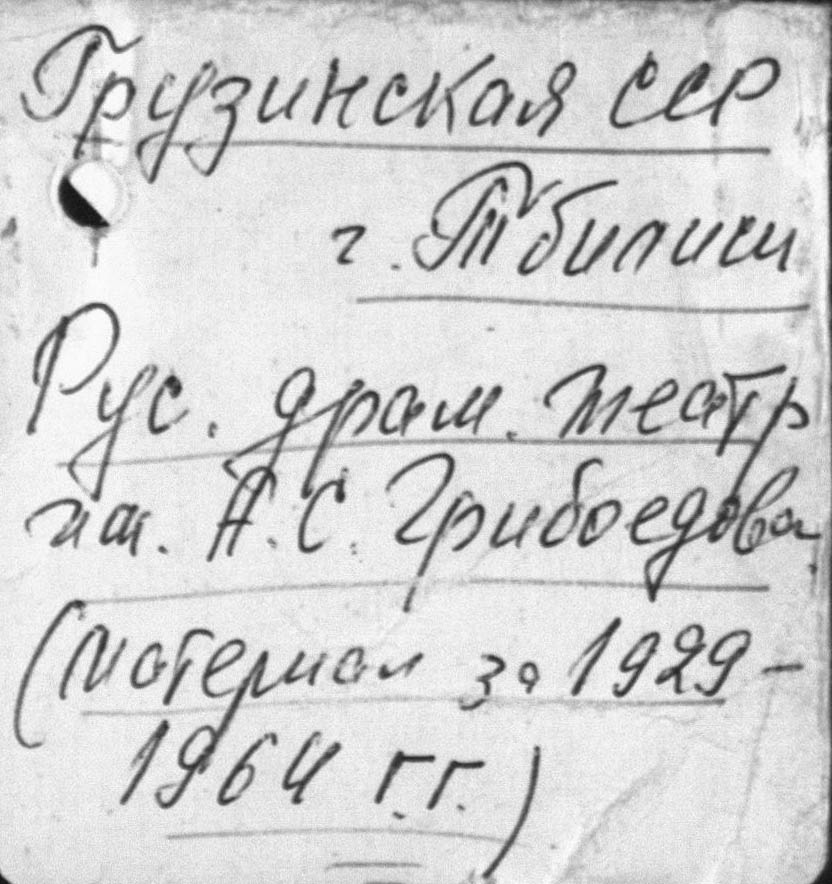 Грузинская ССР
г. Тбилиси
Рус. драм. театр
им. А.С. Грибоедова
(материал за 1929 -
1964 г.г.)